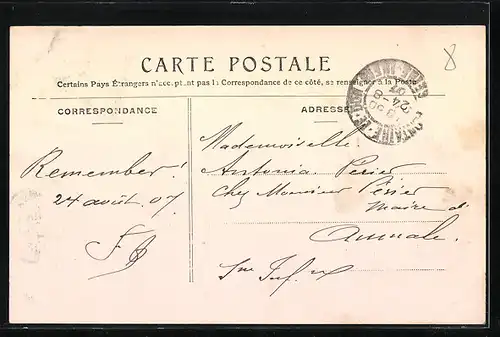 8
CARTE POSTALE
Certains Pays Étrangers n'acceptant pas la Correspondance de ce côté, se renseigner à la Poste
CORRESPONDANCE
ADRESSE
24 -8
07
Mademoiselle
Antonia Périer
Chez Monsieur Périer
Maire d'
Aumale.
Sne Inf re
Remember!
24 août 07